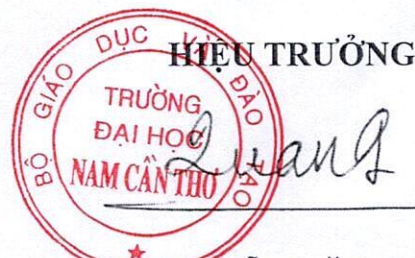 HIỆU TRƯỞNG
BỘ GIÁO DỤC VÀ ĐÀO TẠO
TRƯỜNG
ĐẠI HỌC
NAM CẦN THƠ
Quang